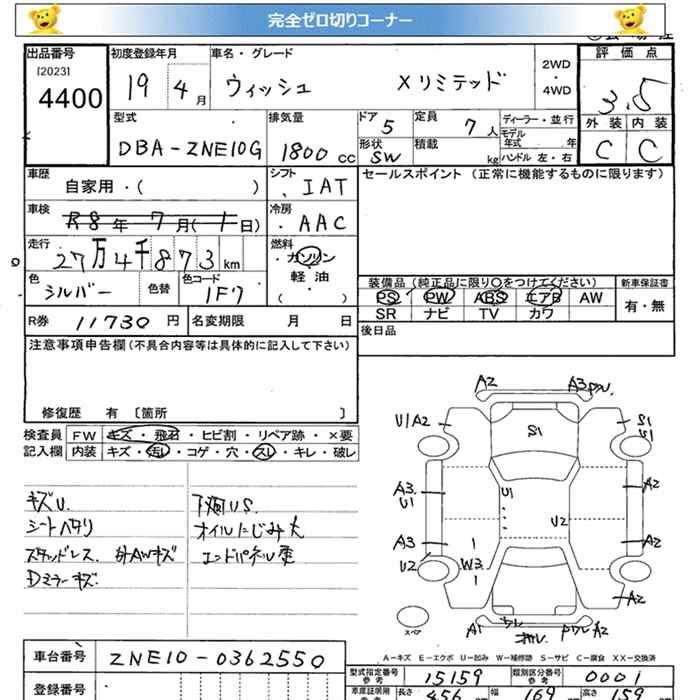 完全ゼロ切りコーナー
出品番号 初度登録年月 車名・グレード 評価点
[2023]
4400 19 4月 ウィッシュ Xリミテッド 2WD・4WD 3.5
型式 排気量 ドア 5 定員 7人 ディーラー・並行 外装 内装
DBA-ZNE10G 1800cc 形状 SW 積載 kg モデル年式 年 C C
ハンドル 左・右
車歴 シフト セールスポイント (正常に機能するものに限ります)
自家用・( ) IAT
車検 冷房
R8年 7月(1日) AAC
走行 燃料
27万4千873km ・ガソリン
色 色替 色コード 軽・油
シルバー 1F7 ( )
装備品(純正品に限り○をつけてください) 新車保証書
PS PW ABS エアB AW 有・無
SR ナビ TV カワ
R券 11730円 名変期限 月 日 後日品
注意事項申告欄(不具合内容等は具体的に記入して下さい)
修復歴 有 〔箇所 〕
検査員 FW キズ・飛石・ヒビ割・リペア跡・×要
記入欄 内装 キズ・汚レ・コゲ・穴・スレ・キレ・破レ
キズU. 下廻リUS.
シートヘタリ オイルにじみ大
スタッドレス. 外AWキズ エンドパネル要
Dミラーキズ.
A2 A3
U1A2 S1 S1
U1
A3. U1 U1 A2
U2
A3 A2
U2 W3
1
A2
スペア A1 A2
A-キズ E-エクボ U-凹み W-補修跡 S-サビ C-腐食 XX-交換済
車台番号 ZNE10-0362550
型式指定番号 参考 15159 類別区分番号 参考 0001
登録番号 車庫証明用 参考 長さ 456 幅 169 高さ 159